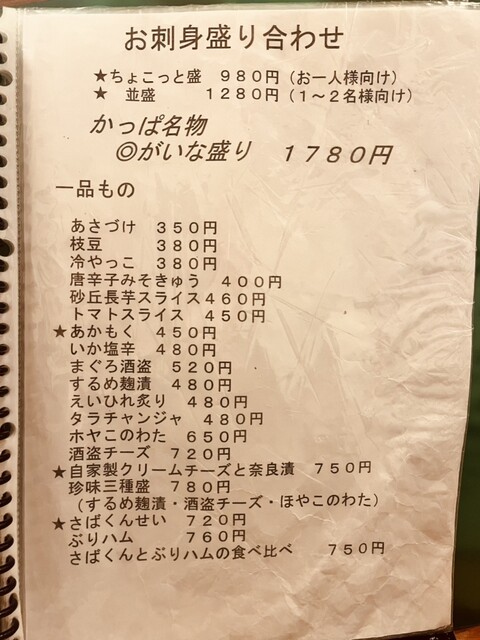 お刺身盛り合わせ
★ちょこっと盛 980円(お一人様向け)
★ 並盛 1280円(1〜2名様向け)
かっぱ名物
◎がいな盛り 1780円
一品もの
あさづけ 350円
枝豆 380円
冷やっこ 380円
唐辛子みそきゅう 400円
砂丘長芋スライス460円
トマトスライス 450円
★あかもく 450円
いか塩辛 480円
まぐろ酒盗 520円
するめ麹漬 480円
えいひれ炙り 480円
タラチャンジャ 480円
ホヤこのわた 650円
酒盗チーズ 720円
★自家製クリームチーズと奈良漬 750円
珍味三種盛 780円
(するめ麹漬・酒盗チーズ・ほやこのわた)
★さばくんせい 720円
ぶりハム 760円
さばくんとぶりハムの食べ比べ 750円